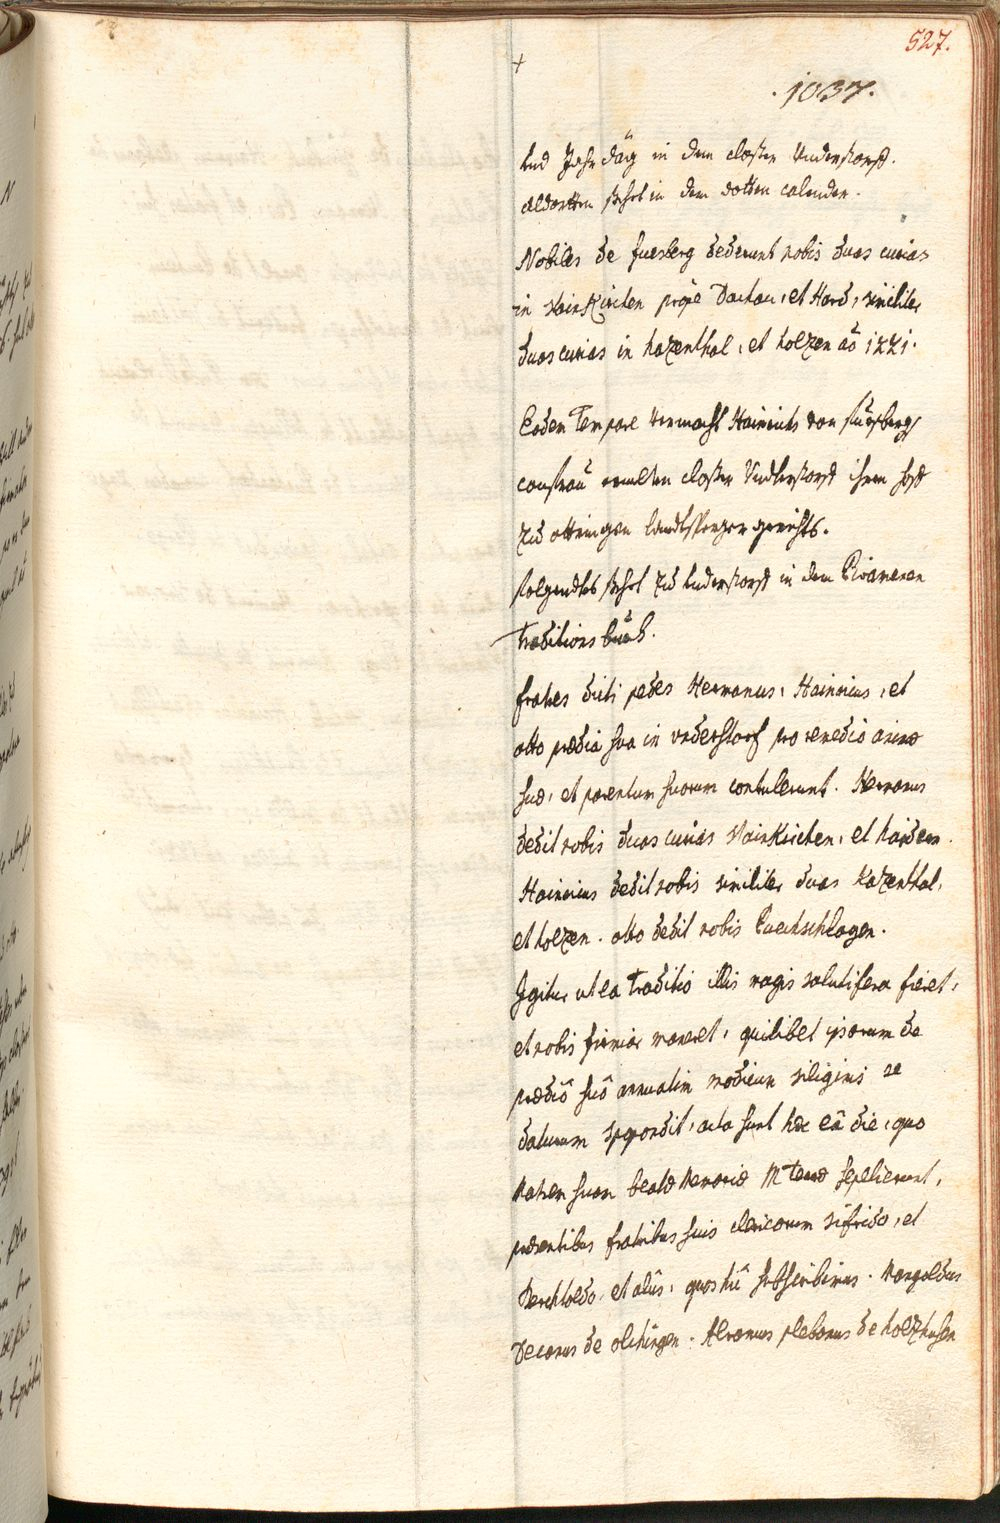 527.
+
. 1037.
und Jahr däg in dem closter Understorff.
aldortten stehet in dem dotten calender.
Nobiles de fuesberg dederunt nobis duas curias
in Vairkirchen prope Dachau, et Hard, similiter
duas curias in kazenthal, et holzen aõ 1221.
Eodem Tempore vermacht Hainrich von
closter Understorff ihren hoff
zu ottmingen landtsperger gerichts.
folgendtes stehet zu Understorff in dem
Traditions buäch.
fratres dicti pedes Hermanus, Hainricus, et
otto prædia sua in understorf pro remedio animæ
suæ, et parentum suorum contulerunt. Hermanus
dedit nobis duas curias Vairkirchen, et harden.
Hainricus dedit nobis similiter duas kazenthal,
et holzen. otto dedit nobis Puechschlagen.
Igitur ut ea Traditio illis magis salutifera fieret,
et nobis firmior maneret, quilibet ipsorum de
prædiô suô annuatim modium siliginis se
daturum spopondit, acta sunt hæc eâ die, qua
Matrem suam beatæ Memoriæ sepelierunt,
præsentibus fratribus suis clericorum sifrido, et
Berchtoldo et aliis, quos hîc subscribimus. Mangoldus
Decanus de olchingen. Alramus plebanus de holzhusen